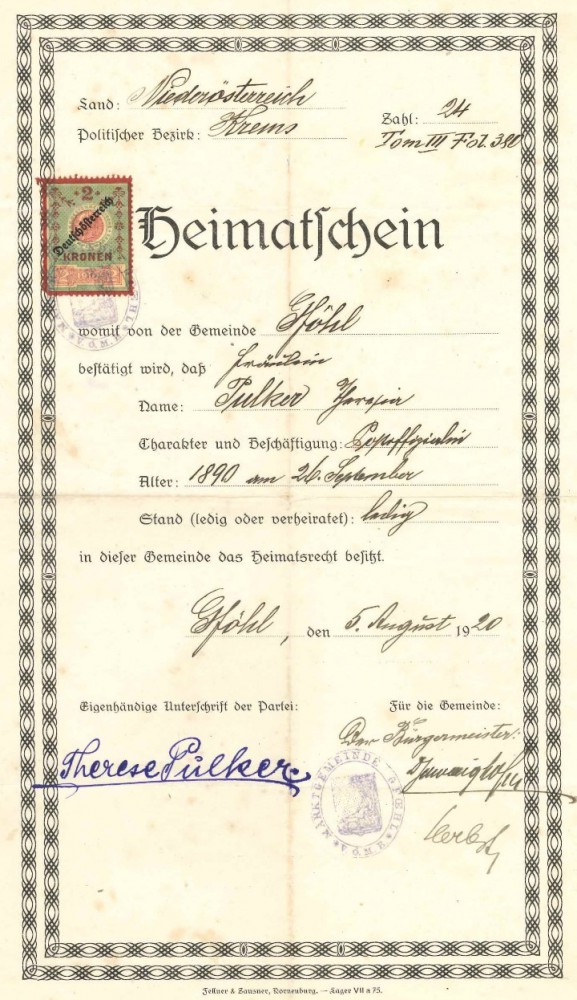 Land: Niederösterreich
Politischer Bezirk: Krems
Zahl: 24
Tom III Fol. 380
2
Deutschösterreich
KRONEN
Heimatschein
womit von der Gemeinde Gföhl
bestätigt wird, daß Fräulein
Name: Pulker Theresia
Charakter und Beschäftigung: Postoffizialin
Alter: 1890 am 26. September
Stand (ledig oder verheiratet): ledig
in dieser Gemeinde das Heimatsrecht besitzt.
Gföhl, den 5. August 1920
Eigenhändige Unterschrift der Partei:
Für die Gemeinde:
Der Bürgermeister:
Therese Pulker
MARKTGEMEINDE GFOEHL
Fellner & Sausner, Korneuburg. — Lager VII n 75.